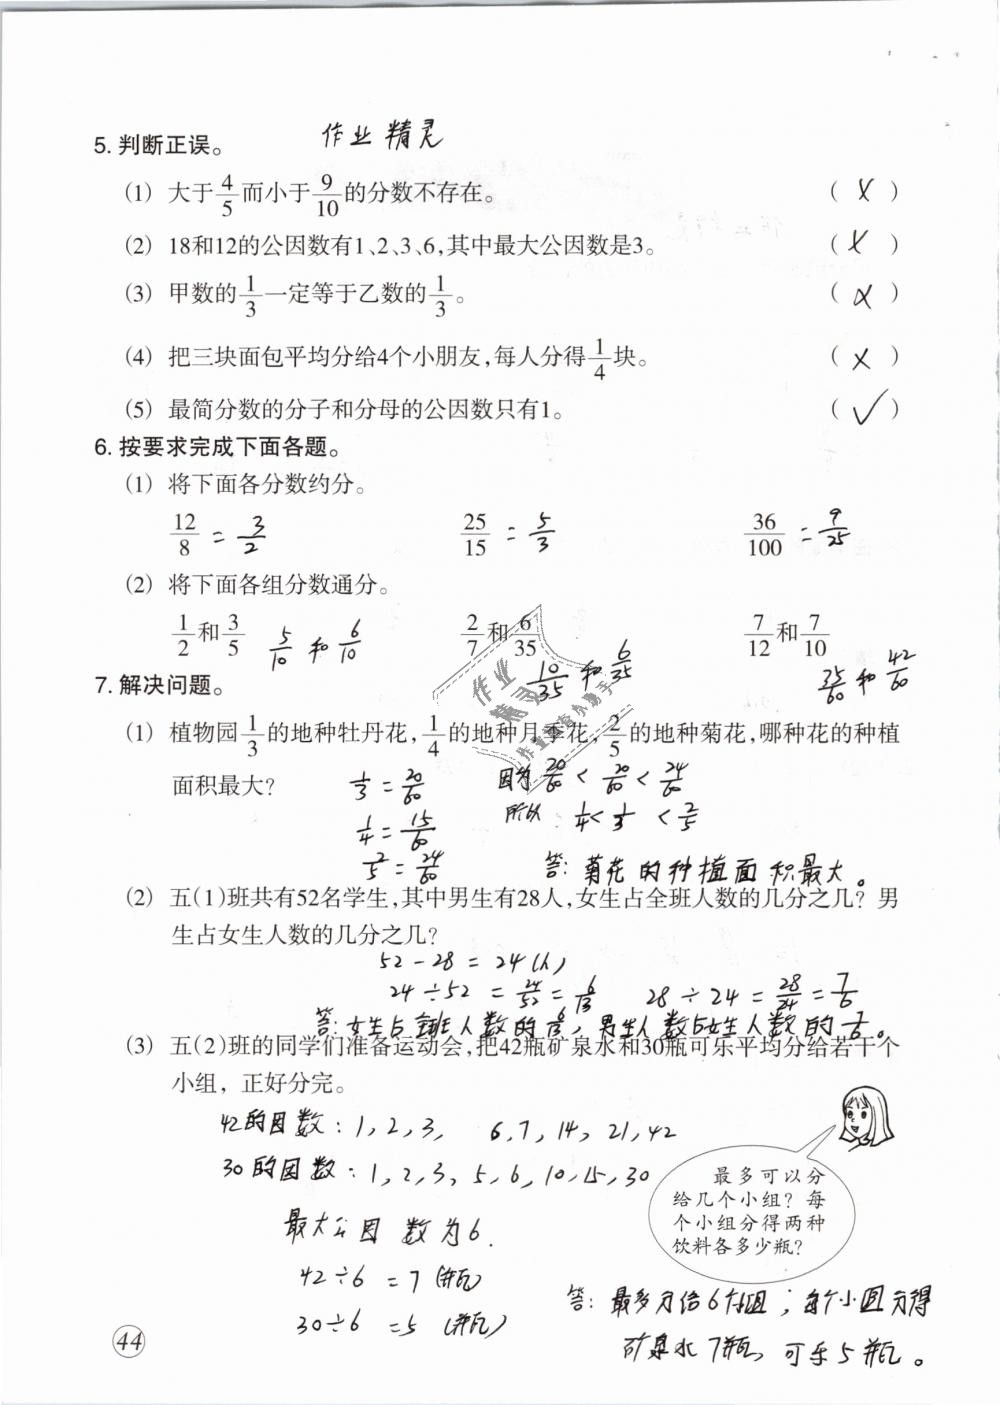 作业精灵
5. 判断正误。
(1) 大于4/5而小于9/10的分数不存在。 ( X )
(2) 18和12的公因数有1、2、3、6,其中最大公因数是3。 ( X )
(3) 甲数的1/3一定等于乙数的1/3。 ( X )
(4) 把三块面包平均分给4个小朋友,每人分得1/4块。 ( X )
(5) 最简分数的分子和分母的公因数只有1。 ( ✓ )
6. 按要求完成下面各题。
(1) 将下面各分数约分。
12/8 = 3/2 25/15 = 5/3 36/100 = 9/25
(2) 将下面各组分数通分。
1/2和3/5 5/10和6/10 2/7和6/35 7/12和7/10
10/35和6/35 35/60和42/60
7. 解决问题。
(1) 植物园1/3的地种牡丹花,1/4的地种月季花,2/5的地种菊花,哪种花的种植
面积最大?
1/3 = 20/60 因为 20/60 < 20/60 < 24/60
1/4 = 15/60 所以 1/4 < 1/3 < 2/5
2/5 = 24/60 答:菊花的种植面积最大。
(2) 五(1)班共有52名学生,其中男生有28人,女生占全班人数的几分之几?男
生占女生人数的几分之几?
52-28=24(人)
24÷52=24/52=6/13 28÷24=28/24=7/6
答:女生占全班人数的6/13,男生人数占女生人数的7/6。
(3) 五(2)班的同学们准备运动会,把42瓶矿泉水和30瓶可乐平均分给若干个
小组,正好分完。
42的因数:1,2,3, 6,7,14,21,42
30的因数:1,2,3,5,6,10,15,30
最大公因数为6.
42÷6=7(瓶)
30÷6=5(瓶)
最多可以分
给几个小组?每
个小组分得两种
饮料各多少瓶?
答:最多分给6个组;每个小组分得
矿泉水7瓶,可乐5瓶。
44
作业
精灵